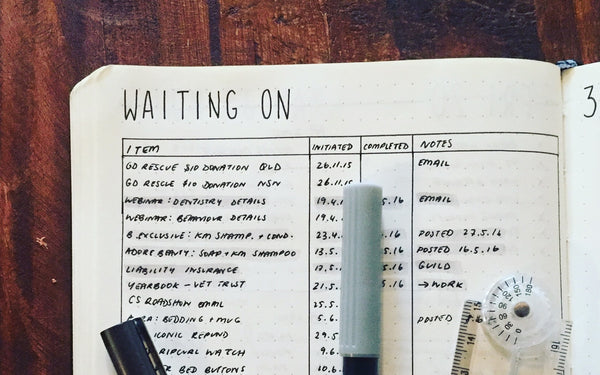 WAITING ON
3
ITEM INITIATED COMPLETED NOTES
GD RESCUE $10 DONATION QLD 26.11.15 EMAIL
GD RESCUE $10 DONATION NSW 26.11.15
WEBINAR: DENTISTRY DETAILS 19.4. 5.16 EMAIL
WEBINAR: BEHAVIOUR DETAILS 19.4.
B.EXCLUSIVE: KM SHAMP. + COND. 23.4. 5.16 POSTED 27.5.16
ADORE BEAUTY: SOAP + KM SHAMPOO 13.5. 5.16 POSTED 16.5.16
LIABILITY INSURANCE 17.5. 5.16 GUILD
YEARBOOK - VET TRUST 21.5. 5.16 → WORK
CS ROADSHOW EMAIL 25.5.
BEDDING + MUG 5.6. POSTED
ICONIC REFUND 29.5.
RIPCURL WATCH 9.6.
BED BUTTONS 10.6.
180
150
120